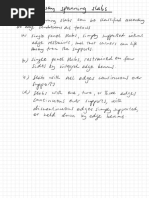 spanning slabs
spanning slabs can be classified according
edge conditions as follows
a) single panel slabs, simply supported without
edge restraints, and their corners can lift
away from the supports
b) single panel slabs, restrained on four
sides by integral edge beams
c) slabs with all edges continuous over
supports
d) slabs with one, two, or three edges
continuous over supports, with
discontinuous edges simply supported,
or with integral edge beams